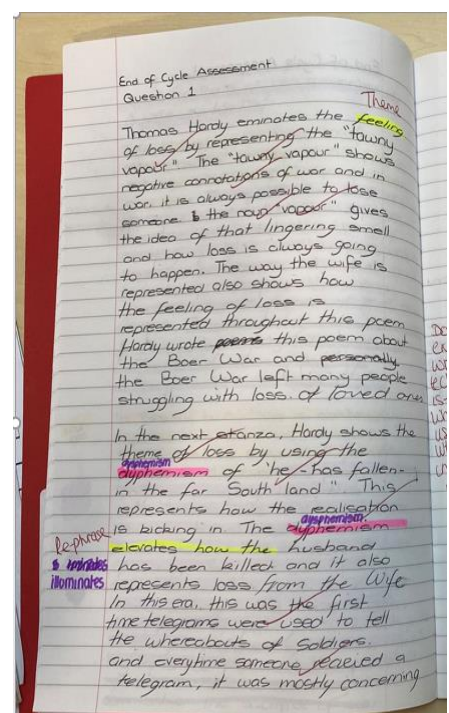 End of Cycle Assessment
Question 1
Theme
Thomas Hardy eminates the feeling
of loss by representing the "tawny
vapour". The "tawny vapour" shows
negative connotations of war and in
war, it is always possible to lose
someone & the noun "vapour" gives
the idea of that lingering smell
and how loss is always going
to happen. The way the wife is
represented also shows how
the feeling of loss is
represented throughout this poem
Hardy wrote poems this poem about
the Boer War and personally
the Boer War left many people
struggling with loss. of loved ones
In the next stanza, Hardy shows the
theme of loss by using the
dysphemism
dyphemism of "he - has fallen -
in the far South land" This
represents how the realisation
dysphemism
is kicking in. The dyphemism
Rephrase elevates how the husband
illominates has been killed and it also
represents loss from the wife
In this era, this was the first
time telegrams were used to tell
the whereabouts of soldiers.
and everytime someone recieved a
telegram, it was mostly concerning